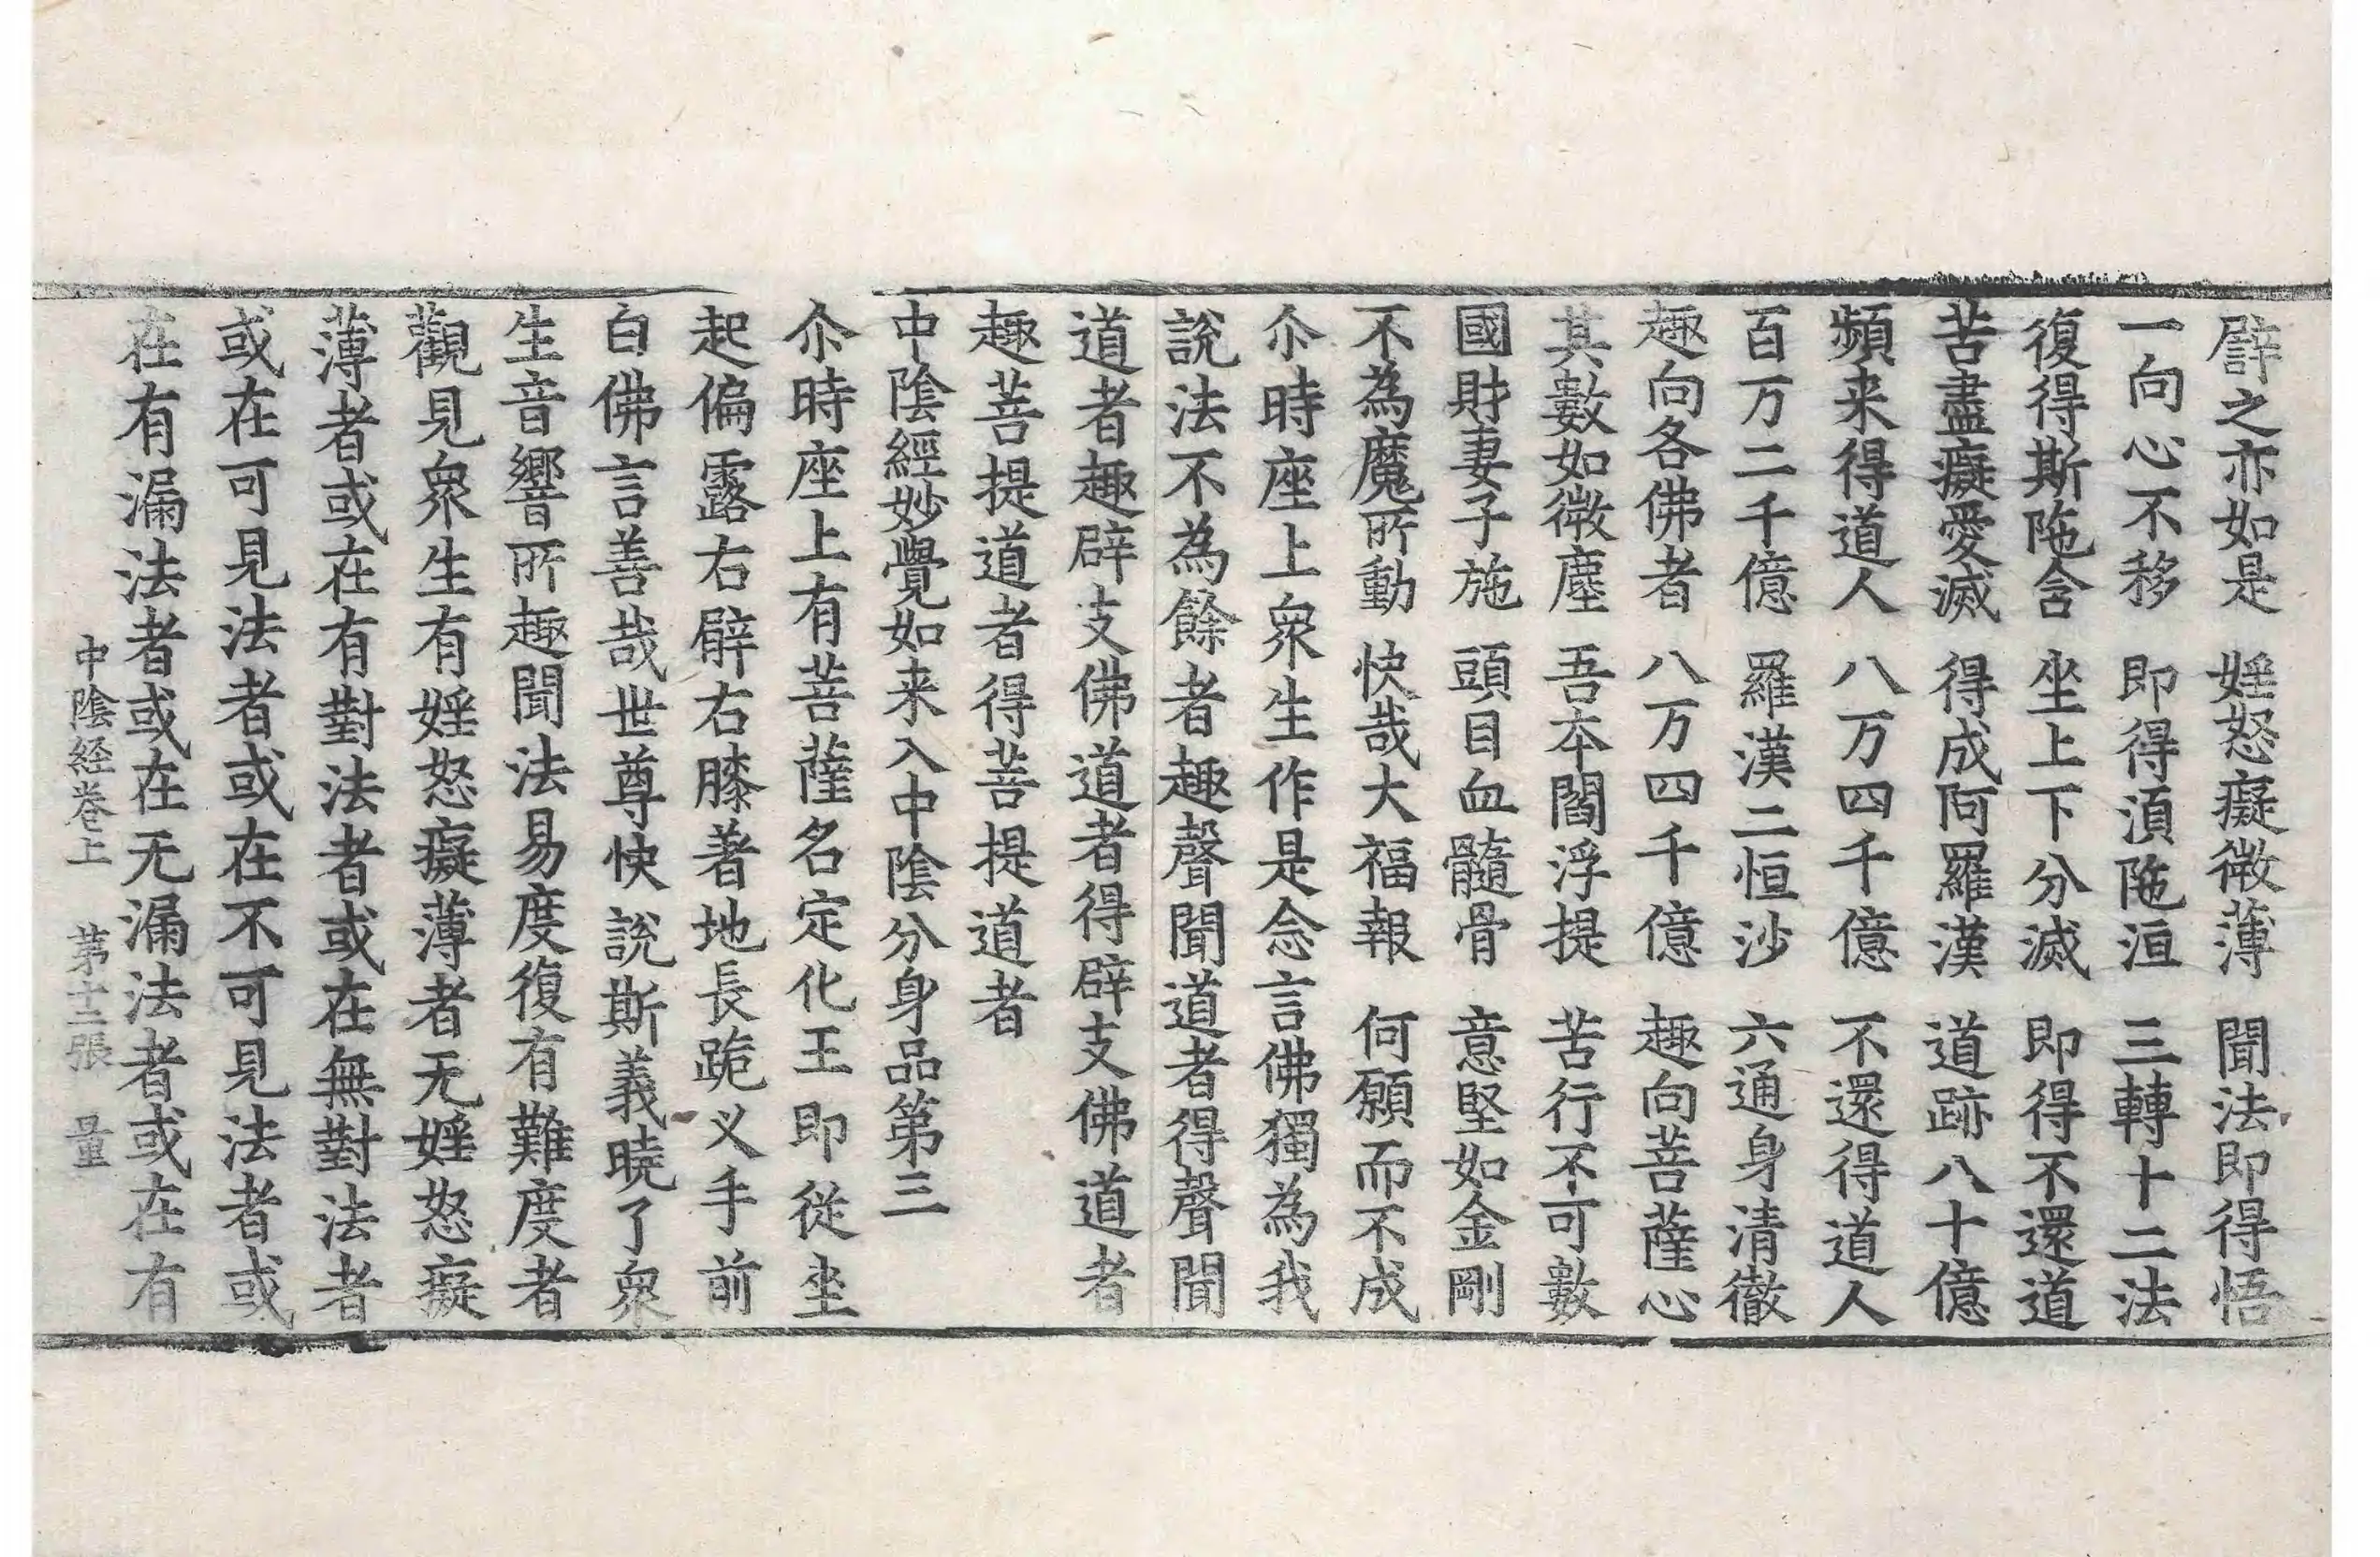 譬之亦如是　婬怒癡微薄　聞法即得悟
一向心不移　即得湏陁洹　三轉十二法
復得斯陁含　坐上下分滅　即得不還道
苦盡癡愛滅　得成阿羅漢　道跡八十億
頻来得道人　八万四千億　不還得道人
百万二千億　羅漢二恒沙　六通身清徹
趣向各佛者　八万四千億　趣向菩薩心
其數如微塵　吾本閻浮提　苦行不可數
國財妻子施　頭目血髓骨　意堅如金剛
不為魔所動　快哉大福報　何願而不成
尒時座上衆生作是念言佛獨為我
說法不為餘者趣聲聞道者得聲聞
道者趣辟支佛道者得辟支佛道者
趣菩提道者得菩提道者
中陰經妙覺如来入中陰分身品第三
尒時座上有菩薩名定化王即從坐
起偏露右臂右膝著地長跪义手前
白佛言善哉世尊快說斯義曉了衆
生音響所趣聞法易度復有難度者
觀見衆生有婬怒癡薄者无婬怒癡
薄者或在有對法者或在無對法者
或在可見法者或在不可見法者或
在有漏法者或在无漏法者或在有
中陰経卷上　苐十二張　量